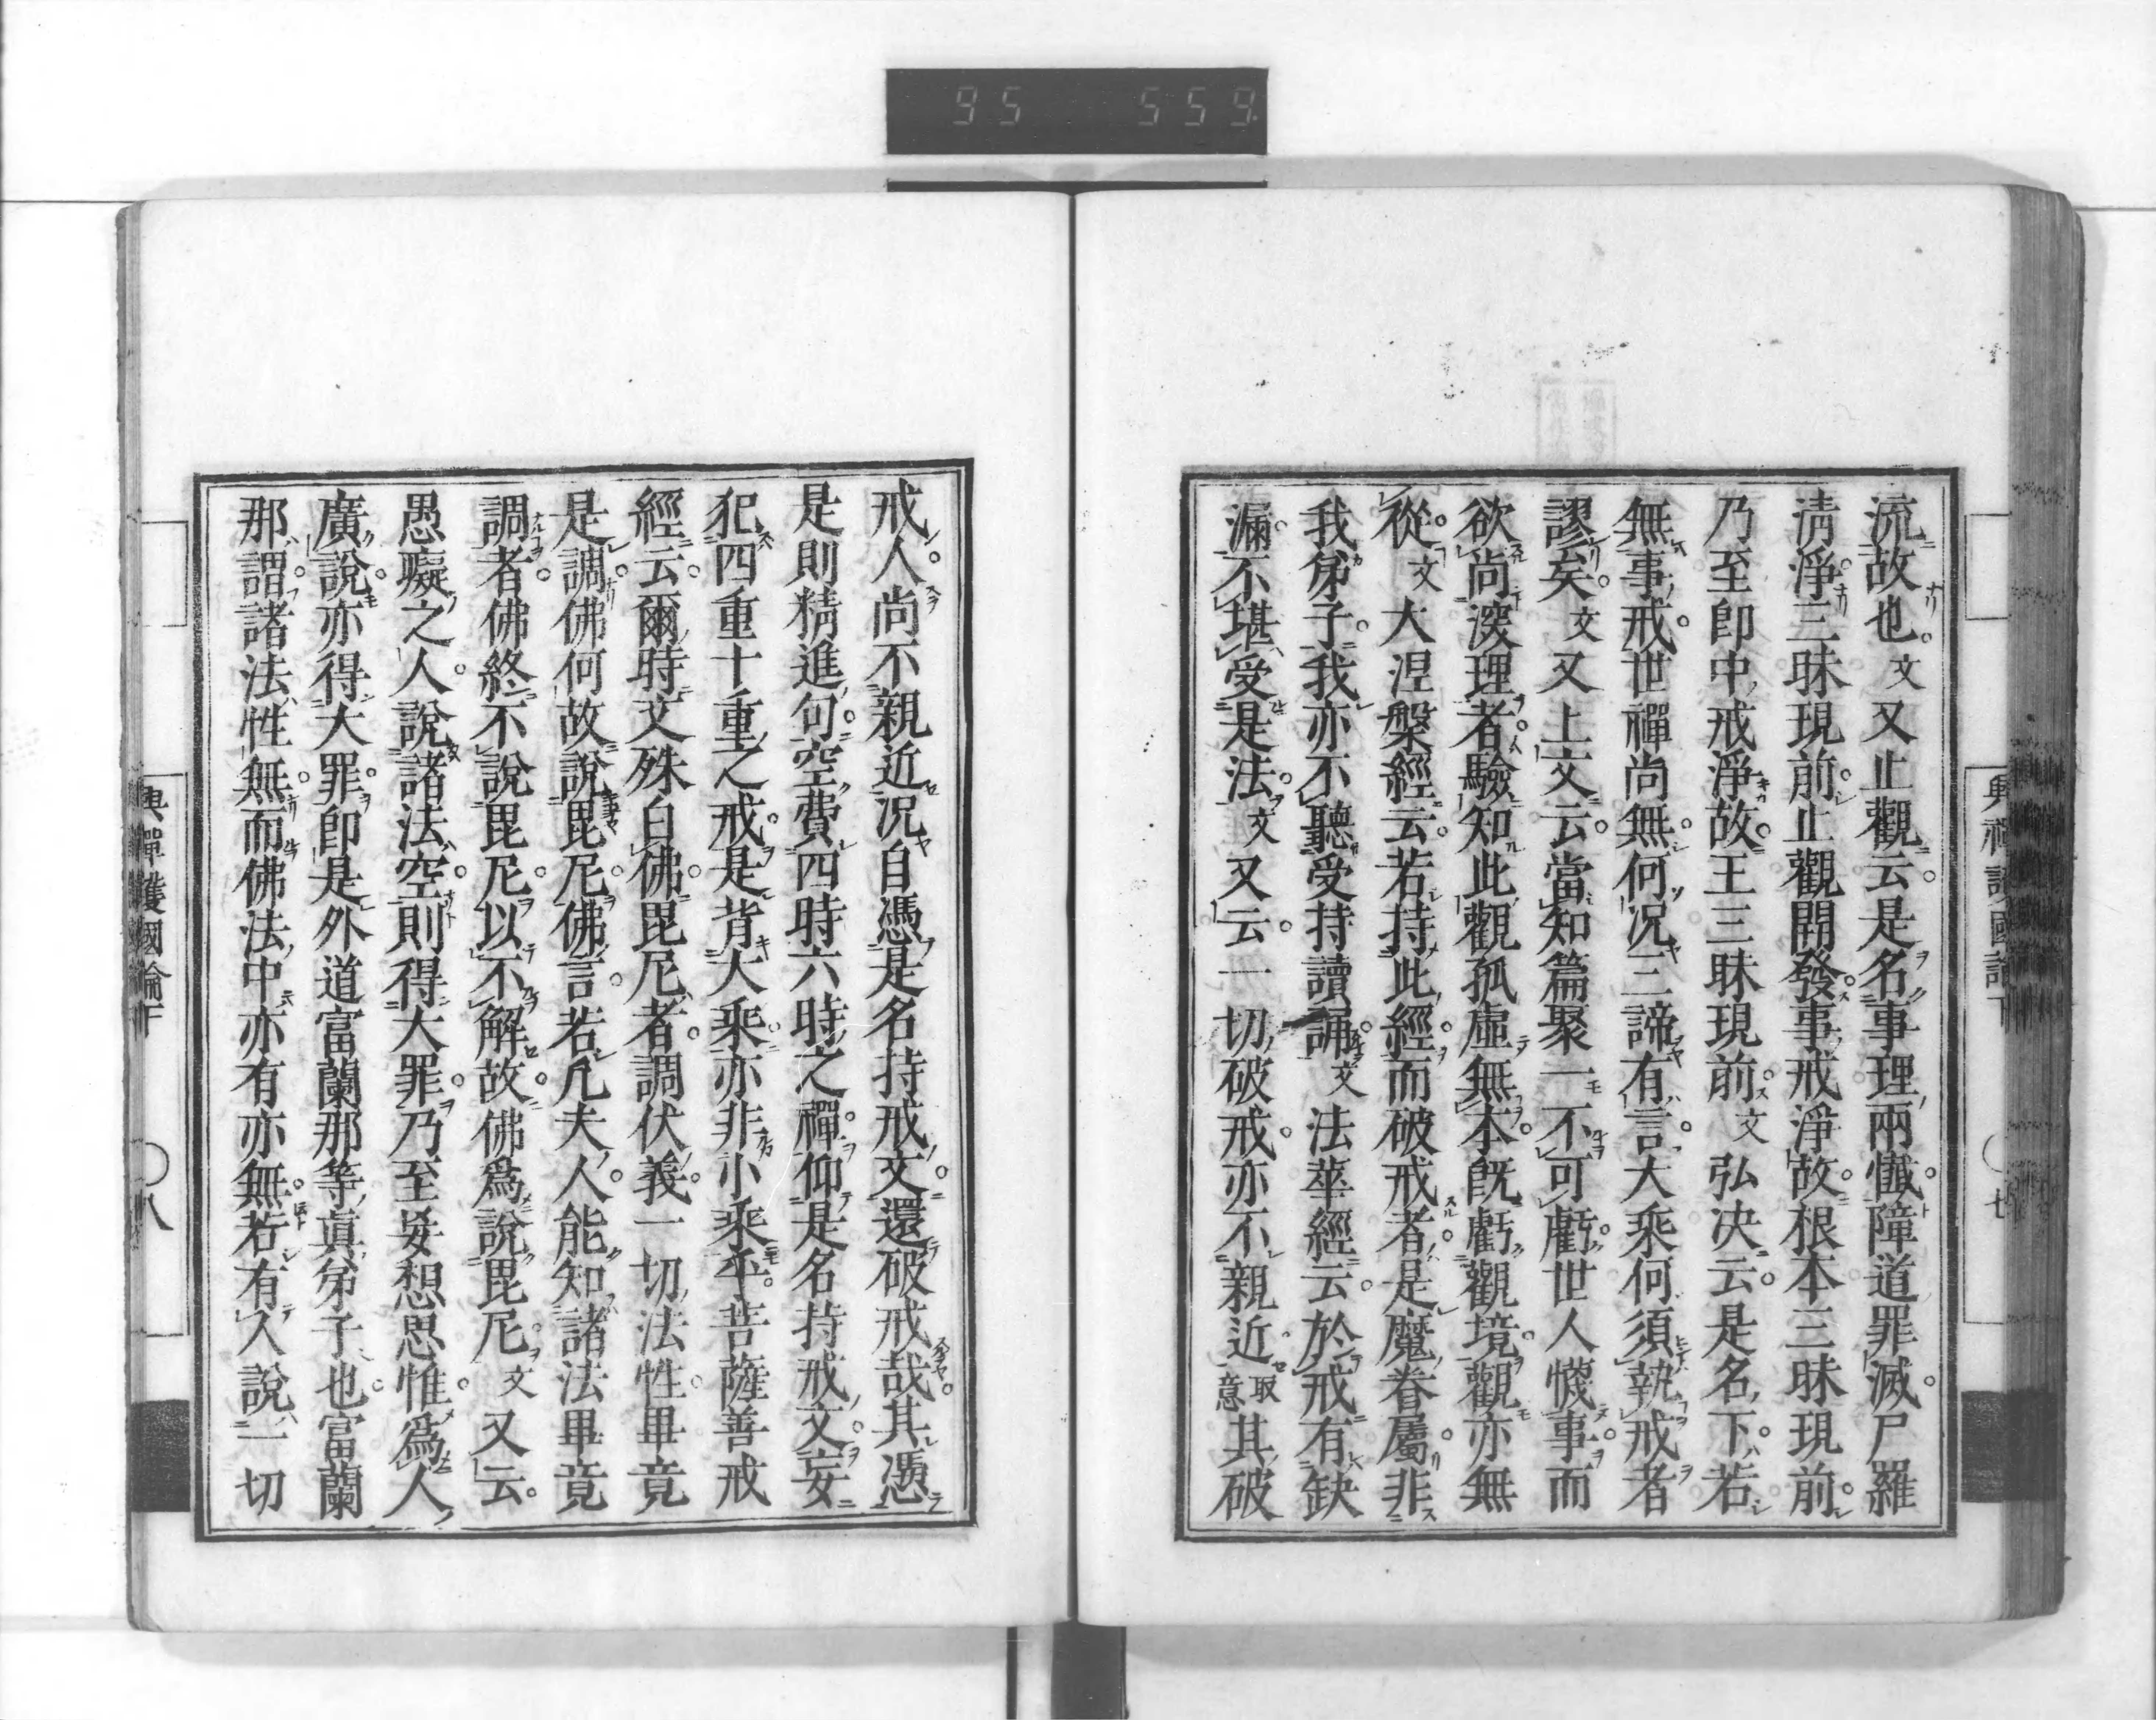 95 559
流故也文又止觀云是名事理兩懺障道罪滅尸羅
淸淨三昧現前止觀開發事戒淨故根本三昧現前
乃至卽中戒淨故王三昧現前文弘決云是名下若
無事戒世禪尚無何況三諦有言大乘何須執戒者
謬矣文又上文云當知篇聚一不可虧世人懱事而
欲尚深理者驗知此觀孤虛無本旣虧觀境觀亦無
從文大涅槃經云若持此經而破戒者是魔眷屬非
我弟子我亦不聽受持讀誦文法華經云於戒有缺
漏不堪受是法文又云一切破戒亦不親近取意其破
興禪護國論下 〇七
戒人尚不親近況自憑是名持戒文還破戒哉其憑
是則精進句空費四時六時之禪仰是名持戒文妄
犯四重十重之戒是背大乘亦非小乘乎菩薩善戒
經云爾時文殊白佛毘尼者調伏義一切法性畢竟
是調佛何故說毘尼佛言若凡夫人能知諸法畢竟
調者佛終不說毘尼以不解故佛爲說毘尼文又云
愚癡之人說諸法空則得大罪乃至妄想思惟爲人
廣說亦得大罪卽是外道富蘭那等眞弟子也富蘭
那謂諸法性無而佛法中亦有亦無若有人說一切
興禪護國論下 〇八